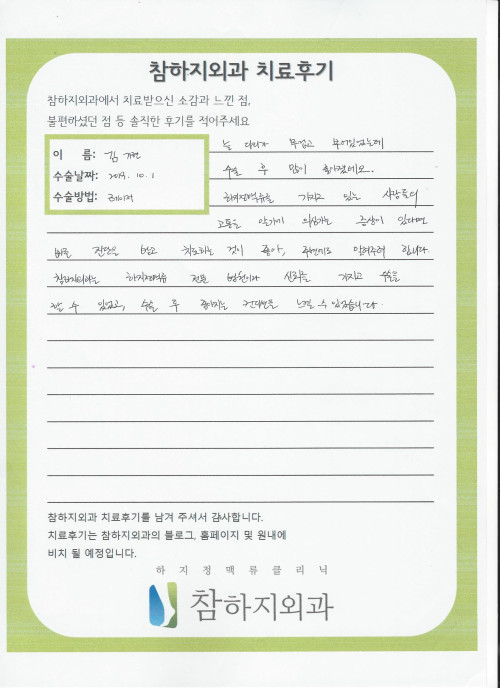 참하지외과 치료후기
참하지외과에서 치료받으신 소감과 느낀 점,
불편하셨던 점 등 솔직한 후기를 적어주세요
이 름: 김
수술날짜: 2019. 10. 1
수술방법: 레이저
늘 다리가 무겁고 부어있었는데
수술 후 많이 좋아졌어요.
하지정맥류를 가지고 있는 사람들의
고통을 알기에 의심가는 증상이 있다면
빠른 진단을 받고 치료하는 것이 좋아, 주변에도 알려주려 합니다
참하지외과는 하지정맥류 전문 병원이라 신뢰를 가지고 수술을
할 수 있었고, 수술 후 좋아지는 컨디션을 느낄 수 있었습니다.
참하지외과 치료후기를 남겨 주셔서 감사합니다.
치료후기는 참하지외과의 블로그, 홈페이지 및 원내에
비치 될 예정입니다.
하지정맥류클리닉
참하지외과